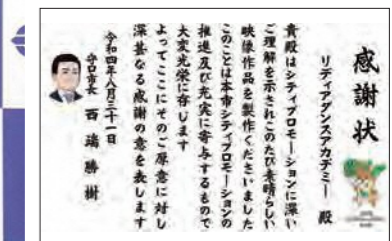 感謝状
リディアダンスアカデミー 殿
貴殿はシティプロモーションに深い
ご理解を示されこのたび素晴らしい
映像作品を製作くださいました
このことは本市シティプロモーションの
推進及び充実に寄与するもので
大変光栄に存じます
よってここにそのご厚意に対し
深甚なる感謝の意を表します
令和四年八月三十一日
守口市長 西端勝樹